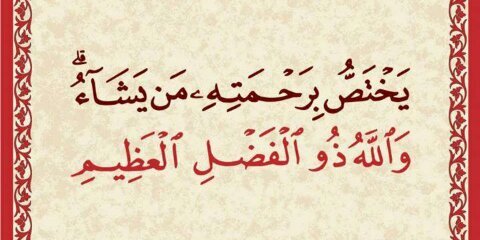 يَخْتَصُّ بِرَحْمَتِهِۦ مَن يَشَآءُ ۗ
وَٱللَّهُ ذُو ٱلْفَضْلِ ٱلْعَظِيمِ